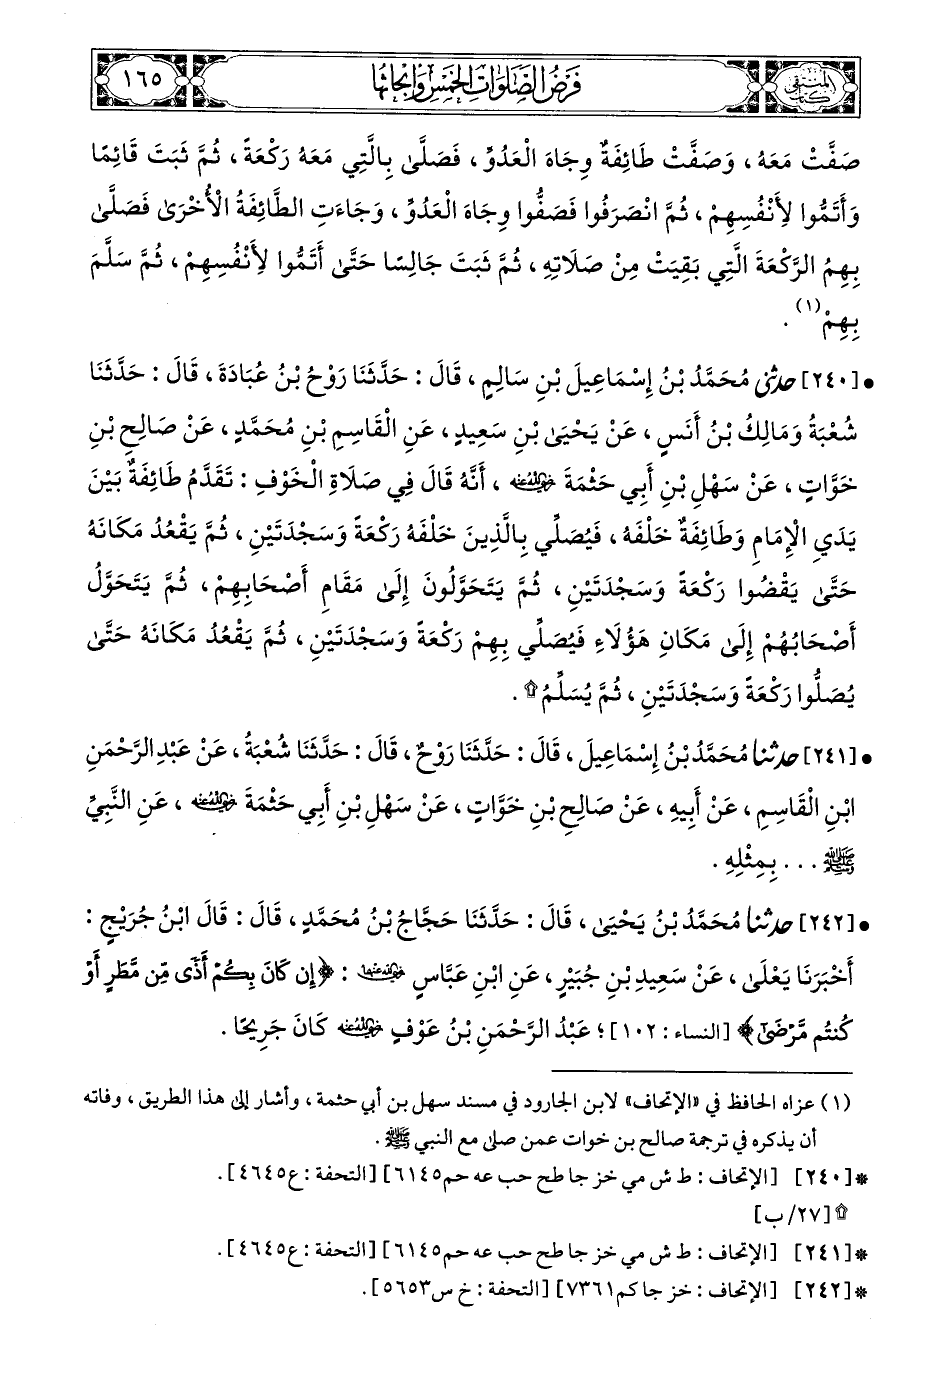 كتاب المنتقى
فرض الصلوات الخمس وأبحاثها
١٦٥
صَفَّتْ مَعَهُ، وَصَفَّتْ طَائِفَةٌ وِجَاهَ الْعَدُوِّ، فَصَلَّىٰ بِالَّتِي مَعَهُ رَكْعَةً، ثُمَّ ثَبَتَ قَائِمًا
وَأَتَمُّوا لِأَنْفُسِهِمْ، ثُمَّ انْصَرَفُوا فَصَفُّوا وِجَاهَ الْعَدُوِّ، وَجَاءَتِ الطَّائِفَةُ الْأُخْرَىٰ فَصَلَّىٰ
بِهِمُ الرَّكْعَةَ الَّتِي بَقِيَتْ مِنْ صَلَاتِهِ، ثُمَّ ثَبَتَ جَالِسًا حَتَّىٰ أَتَمُّوا لِأَنْفُسِهِمْ، ثُمَّ سَلَّمَ
بِهِمْ(١).
• [٢٤٠] حدثني مُحَمَّدُ بْنُ إِسْمَاعِيلَ بْنِ سَالِمٍ، قَالَ: حَدَّثَنَا رَوْحُ بْنُ عُبَادَةَ، قَالَ: حَدَّثَنَا
شُعْبَةُ وَمَالِكُ بْنُ أَنَسٍ، عَنْ يَحْيَىٰ بْنِ سَعِيدٍ، عَنِ الْقَاسِمِ بْنِ مُحَمَّدٍ، عَنْ صَالِحِ بْنِ
خَوَّاتٍ، عَنْ سَهْلِ بْنِ أَبِي حَثْمَةَ رضي الله عنه، أَنَّهُ قَالَ فِي صَلَاةِ الْخَوْفِ: تَقَدَّمُ طَائِفَةٌ بَيْنَ
يَدَيِ الْإِمَامِ وَطَائِفَةٌ خَلْفَهُ، فَيُصَلِّي بِالَّذِينَ خَلْفَهُ رَكْعَةً وَسَجْدَتَيْنِ، ثُمَّ يَقْعُدُ مَكَانَهُ
حَتَّىٰ يَقْضُوا رَكْعَةً وَسَجْدَتَيْنِ، ثُمَّ يَتَحَوَّلُونَ إِلَىٰ مَقَامِ أَصْحَابِهِمْ، ثُمَّ يَتَحَوَّلُ
أَصْحَابُهُمْ إِلَىٰ مَكَانِ هَؤُلَاءِ فَيُصَلِّي بِهِمْ رَكْعَةً وَسَجْدَتَيْنِ، ثُمَّ يَقْعُدُ مَكَانَهُ حَتَّىٰ
يُصَلُّوا رَكْعَةً وَسَجْدَتَيْنِ، ثُمَّ يُسَلِّمُ ۩.
• [٢٤١] حدثنا مُحَمَّدُ بْنُ إِسْمَاعِيلَ، قَالَ: حَدَّثَنَا رَوْحٌ، قَالَ: حَدَّثَنَا شُعْبَةُ، عَنْ عَبْدِ الرَّحْمَنِ
ابْنِ الْقَاسِمِ، عَنْ أَبِيهِ، عَنْ صَالِحِ بْنِ خَوَّاتٍ، عَنْ سَهْلِ بْنِ أَبِي حَثْمَةَ رضي الله عنه، عَنِ النَّبِيِّ
ﷺ ... بِمِثْلِهِ.
• [٢٤٢] حدثنا مُحَمَّدُ بْنُ يَحْيَىٰ، قَالَ: حَدَّثَنَا حَجَّاجُ بْنُ مُحَمَّدٍ، قَالَ: قَالَ ابْنُ جُرَيْجٍ:
أَخْبَرَنَا يَعْلَى، عَنْ سَعِيدِ بْنِ جُبَيْرٍ، عَنِ ابْنِ عَبَّاسٍ رضي الله عنهما: ﴿إِن كَانَ بِكُمْ أَذًى مِّن مَّطَرٍ أَوْ
كُنتُم مَّرْضَىٰٓ﴾ [النساء: ١٠٢]؛ عَبْدُ الرَّحْمَنِ بْنُ عَوْفٍ رضي الله عنه كَانَ جَرِيحًا.
(١) عزاه الحافظ في «الإتحاف» لابن الجارود في مسند سهل بن أبي حثمة، وأشار إلى هذا الطريق، وفاته
أن يذكره في ترجمة صالح بن خوات عمن صلى مع النبي ﷺ.
* [٢٤٠] [الإتحاف: ط ش مي خز جا طح حب عه حم ٦١٤٥] [التحفة: ع ٤٦٤٥].
۩ [٢٧/ ب]
* [٢٤١] [الإتحاف: ط ش مي خز جا طح حب عه حم ٦١٤٥] [التحفة: ع ٤٦٤٥].
* [٢٤٢] [الإتحاف: خز جا كم ٧٣٦١] [التحفة: خ س ٥٦٥٣].